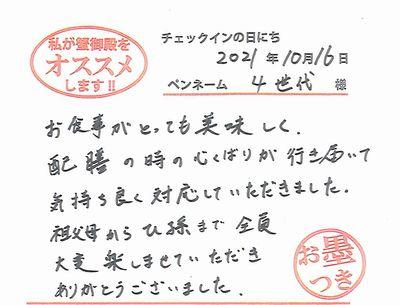 私が蟹御殿を
オススメ
します!!
チェックインの日にち
2021年10月16日
ペンネーム 4世代 様
お食事がとっても美味しく、
配膳の時の心くばりが行き届いて
気持ち良く対応していただきました。
祖父母からひ孫まで全員
大変楽しませていただき
ありがとうございました。
お墨
つき